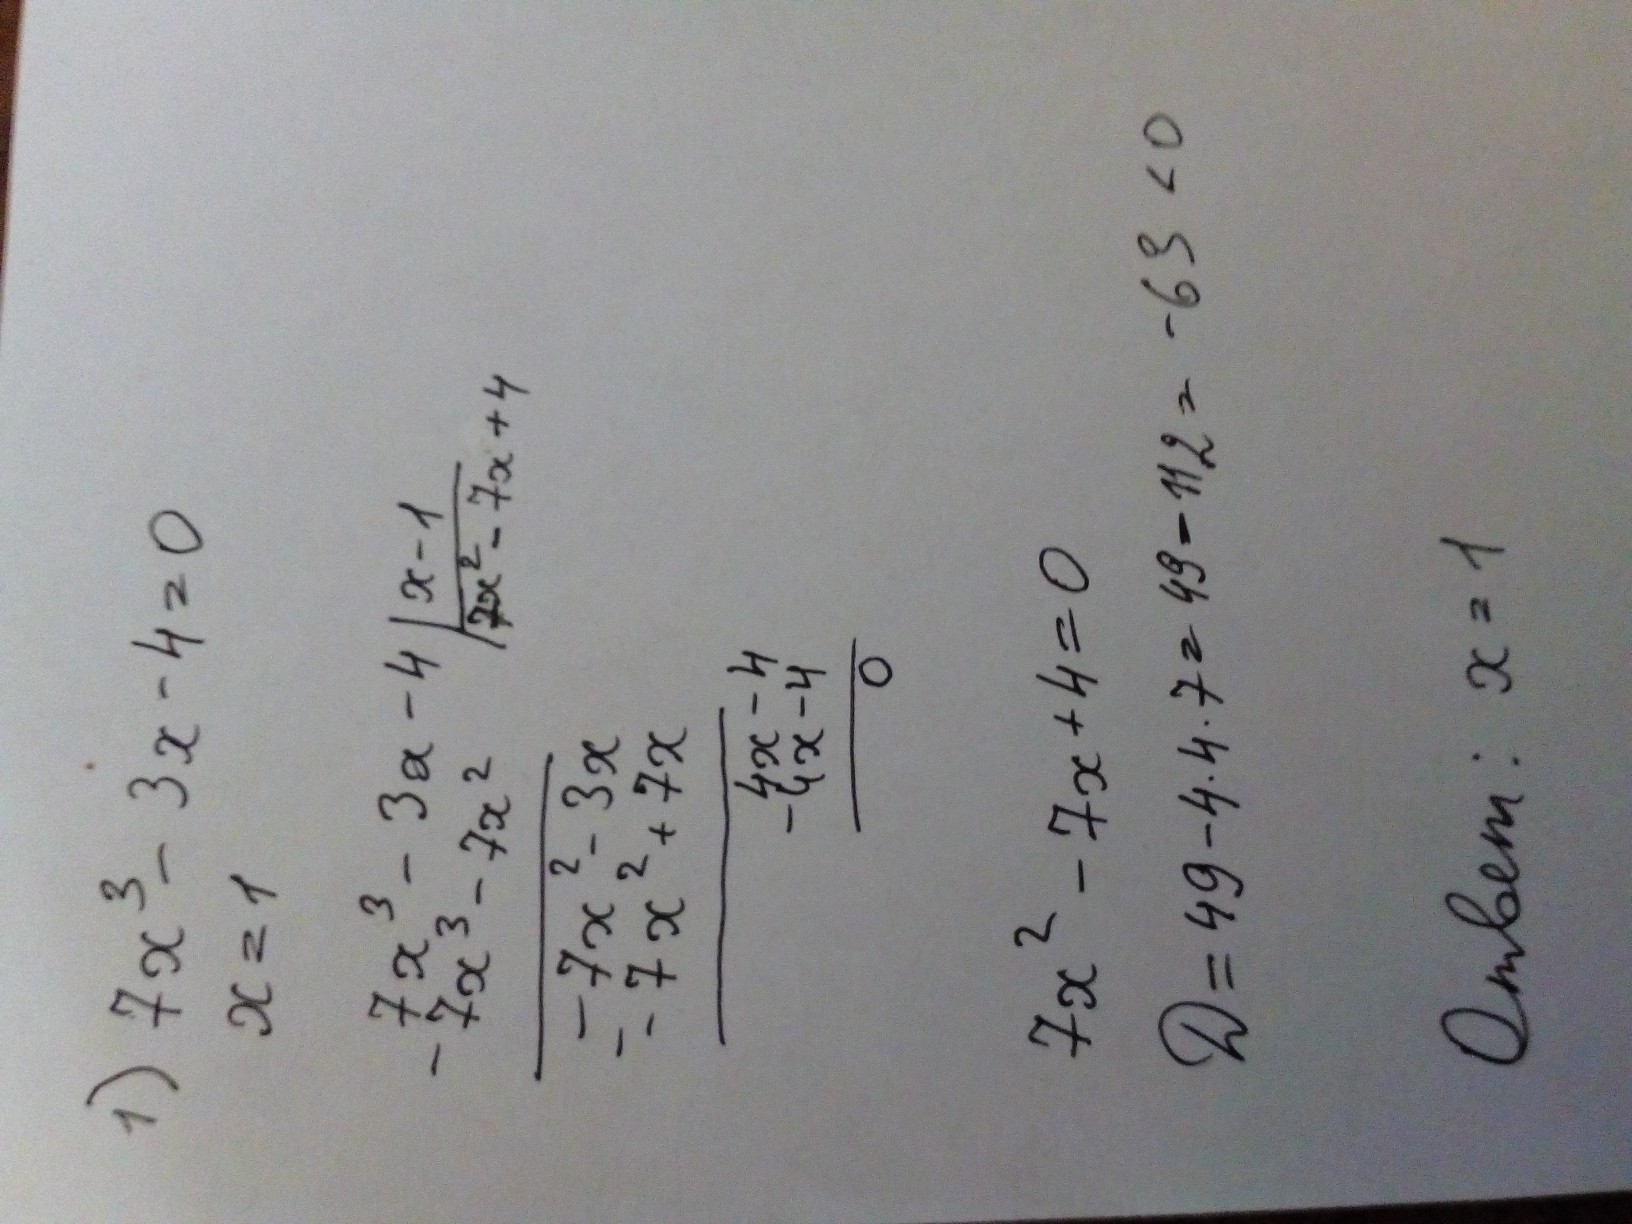 1) 7x³ - 3x - 4 = 0
x = 1
7x³ - 3x - 4 | x - 1
- 7x³ - 7x² | 7x² - 7x + 4
- 7x² - 3x
- - 7x² + 7x
4x - 4
- 4x - 4
0
7x² - 7x + 4 = 0
D = 49 - 4·4·7 = 49 - 112 = -63 < 0
Ответ: x = 1